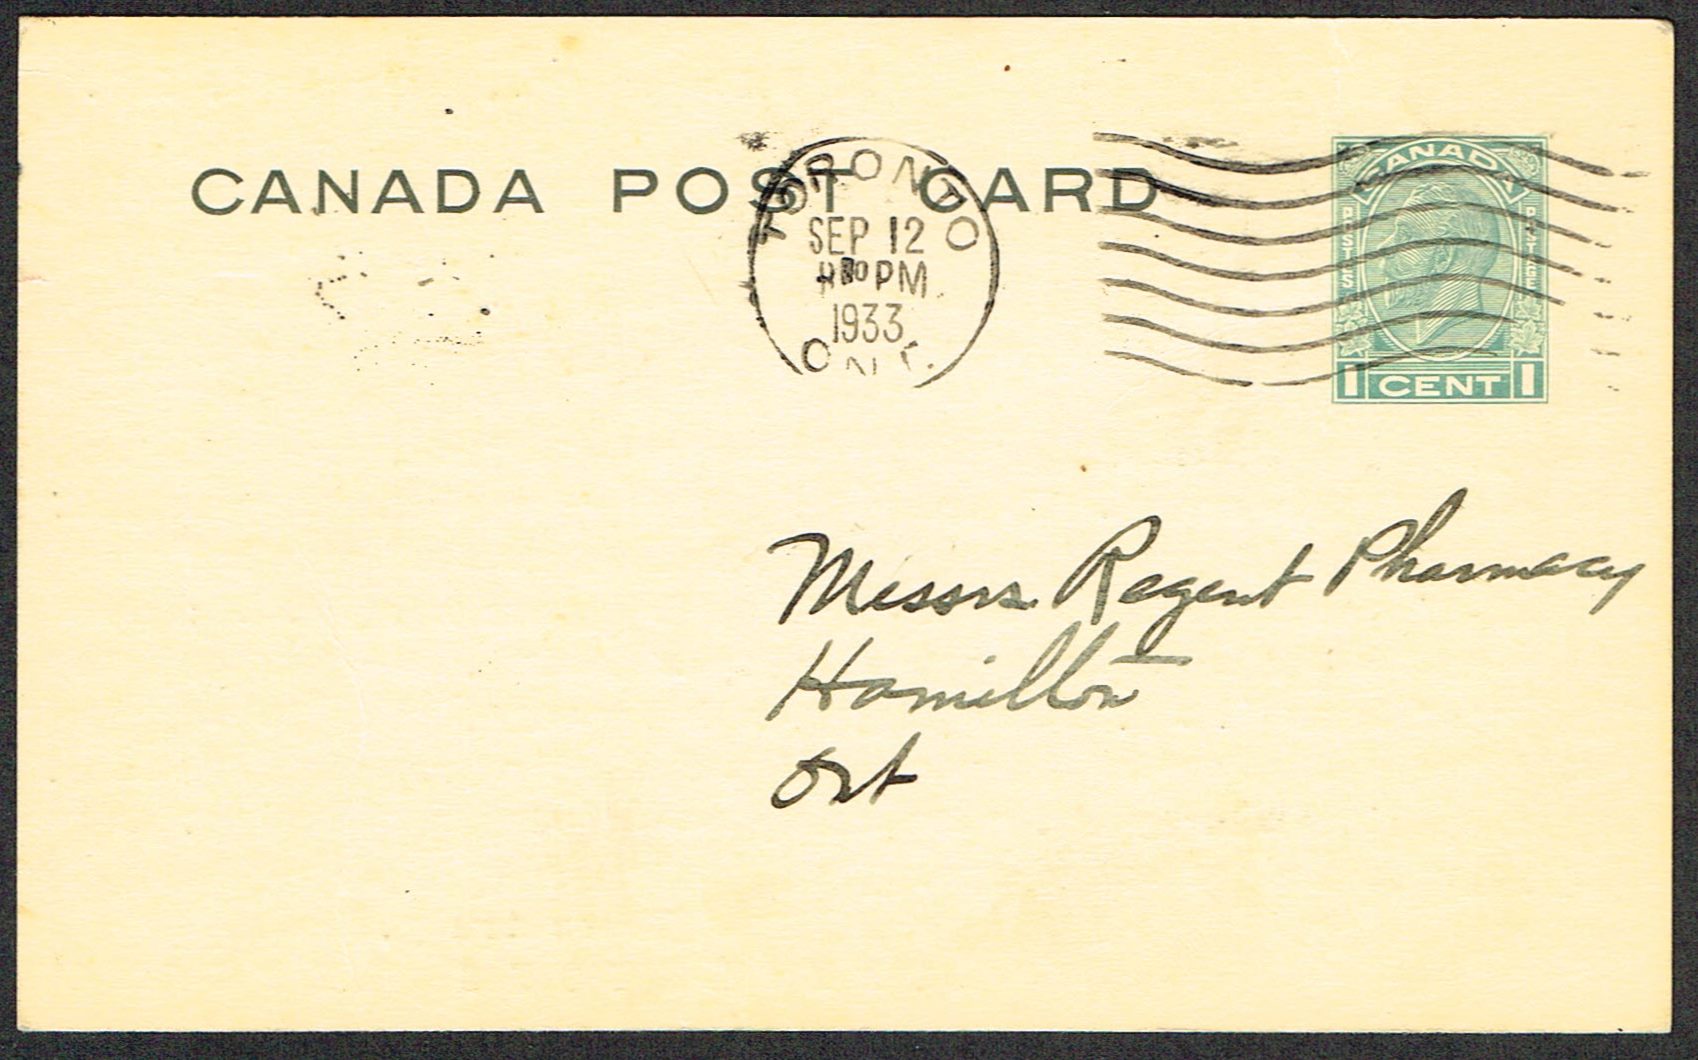 CANADA POST CARD
TORONTO
SEP 12
PM
1933
ONT.
CANADA
POSTES
POSTAGE
1 CENT 1
Messrs. Regent Pharmacy
Hamilton
Ont